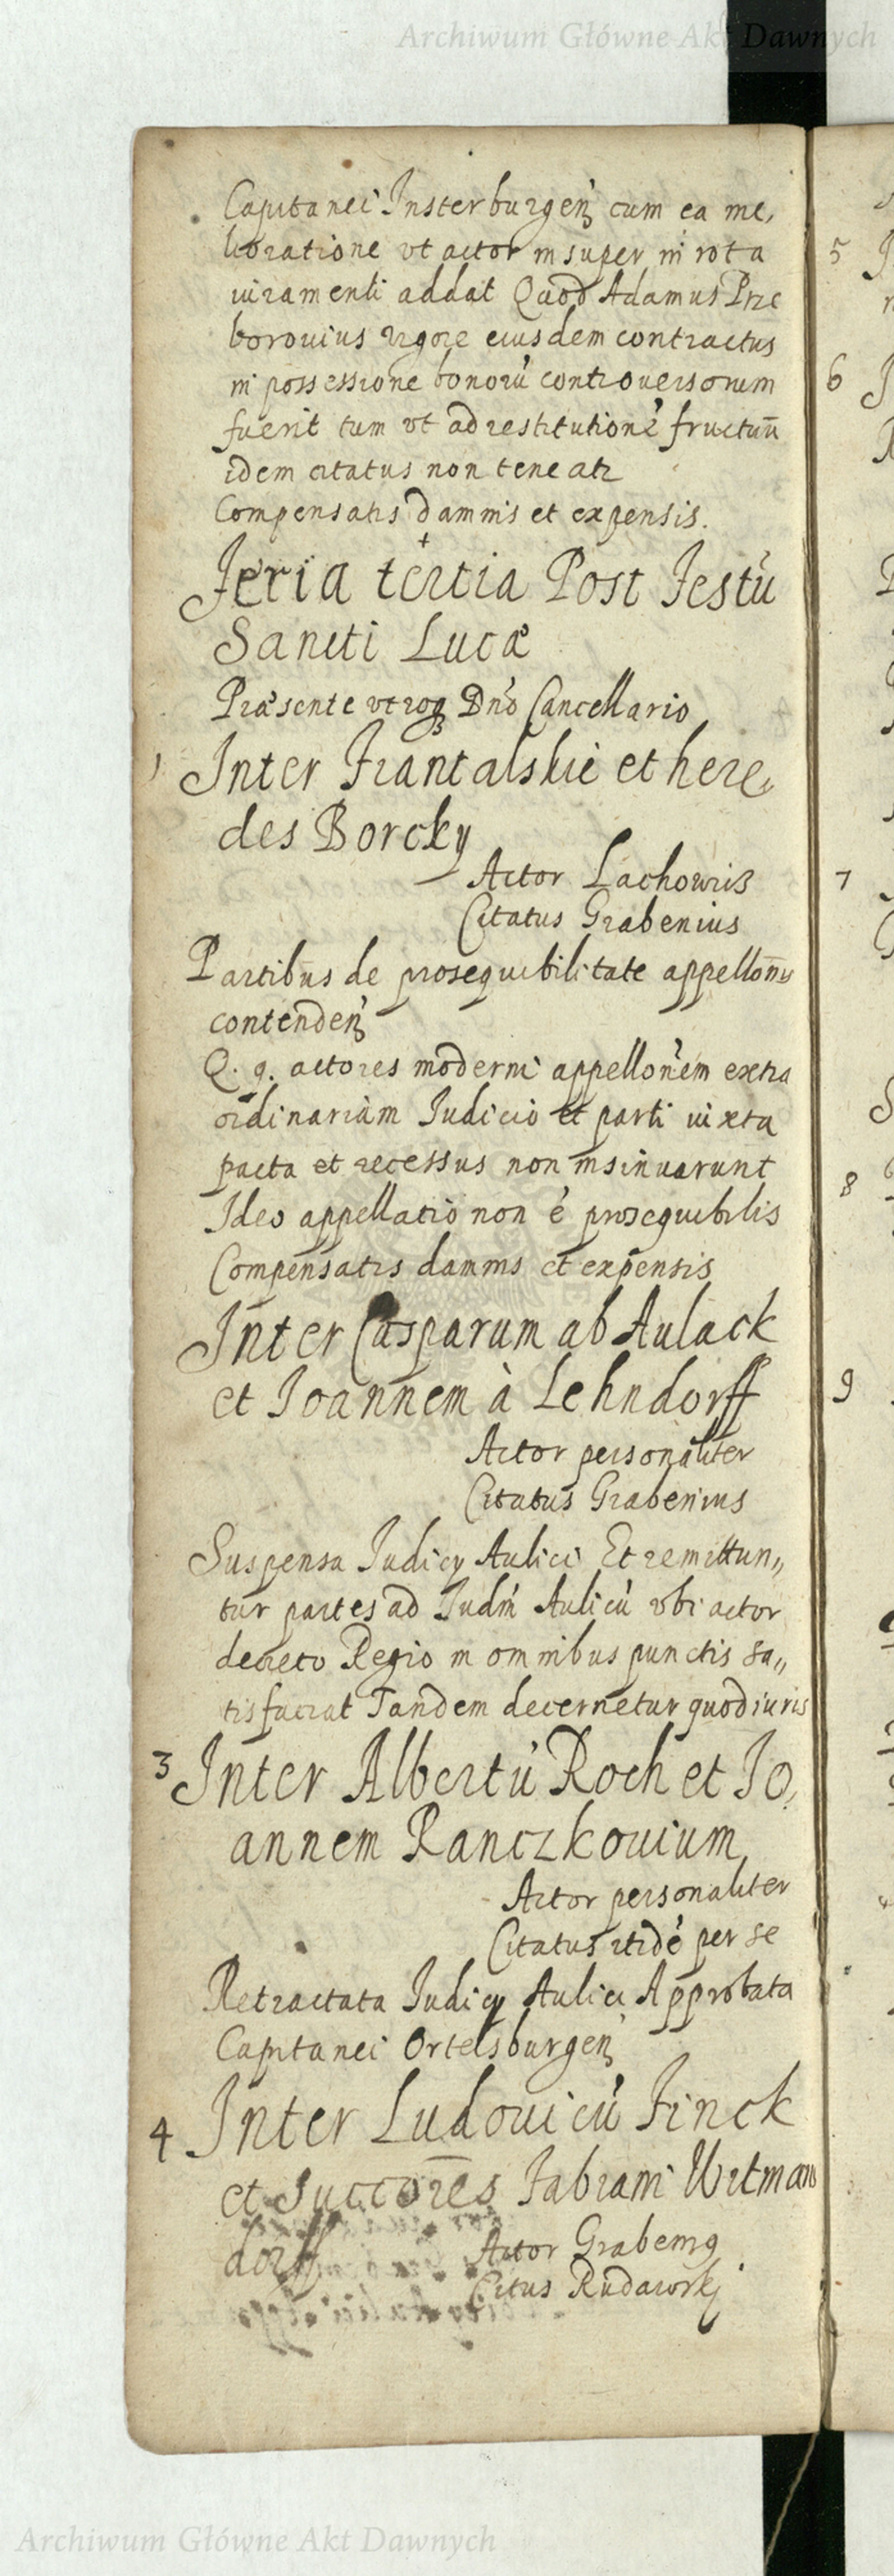 Archiwum Główne Akt Dawnych
Capitanei Insterburgen̄ cum ea me,
lioratione vt actor insuper in rota
iuramenti addat Quod Adamus Prze
borouius vigore eiusdem contractus
in possessione bonorū controuersorum
fuerit tum vt ad restitutionē fructuū
idem citatus non teneatr
Compensatis damnis et expensis.
Feria tertia Post Festū
Sancti Lucæ
Præsente vtroq Dnō Cancellario
1 Inter Frantalskie et here,
des Borcky
Actor Lachowis
Citatus Grabenius
Partibus de prosequibilitate appellonis
contenden̄
Q. q. actores moderni appellonēm extra
ordinariam Iudicio et parti iuxta
pacta et recessus non insinuarunt
Ideo appellatio non ē prosequibilis
Compensatis damnis et expensis
Inter Casparum ab Aulack
et Ioannem à Lehndorff
Actor personaliter
Citatus Grabenius
Suspensa Iudicy Aulici Et remittun,,
tur partes ad Iudm̄ Aulicū vbi actor
decreto Regio in omnibus punctis sa,,
tisfaciat Tandem decernetur quod iuris
3 Inter Albertū Roch et Io,
annem Ranczkouium
Actor personaliter
Citatus itidē per se
Retractata Iudicy Aulici Approbata
Capitanei Ortelsburgen̄
4 Inter Ludouicū Finck
et Succōres Fabiani Witman
dorff
Actor Grabeni9
Citus Rudawskj
5
6
7
8
9
Archiwum Główne Akt Dawnych